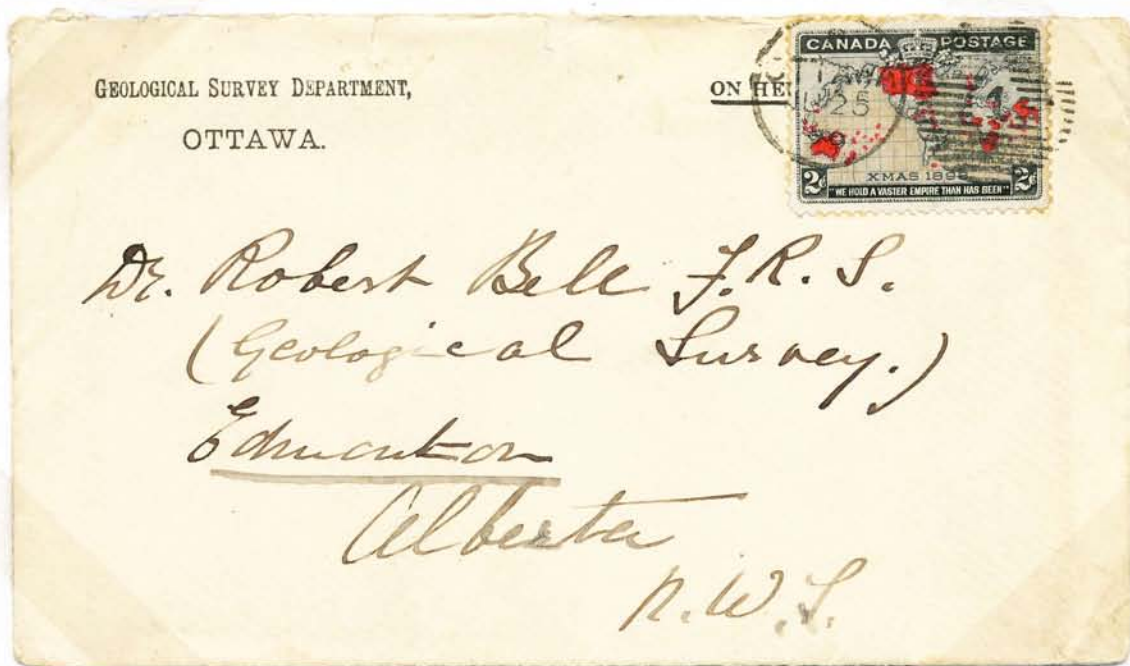 GEOLOGICAL SURVEY DEPARTMENT,
OTTAWA.
ON HE
CANADA POSTAGE
25
XMAS 1898
2 2
"WE HOLD A VASTER EMPIRE THAN HAS BEEN"
Dr. Robert Bell F.R.S.
(Geological Survey.)
Edmonton
Alberta
N.W.T.